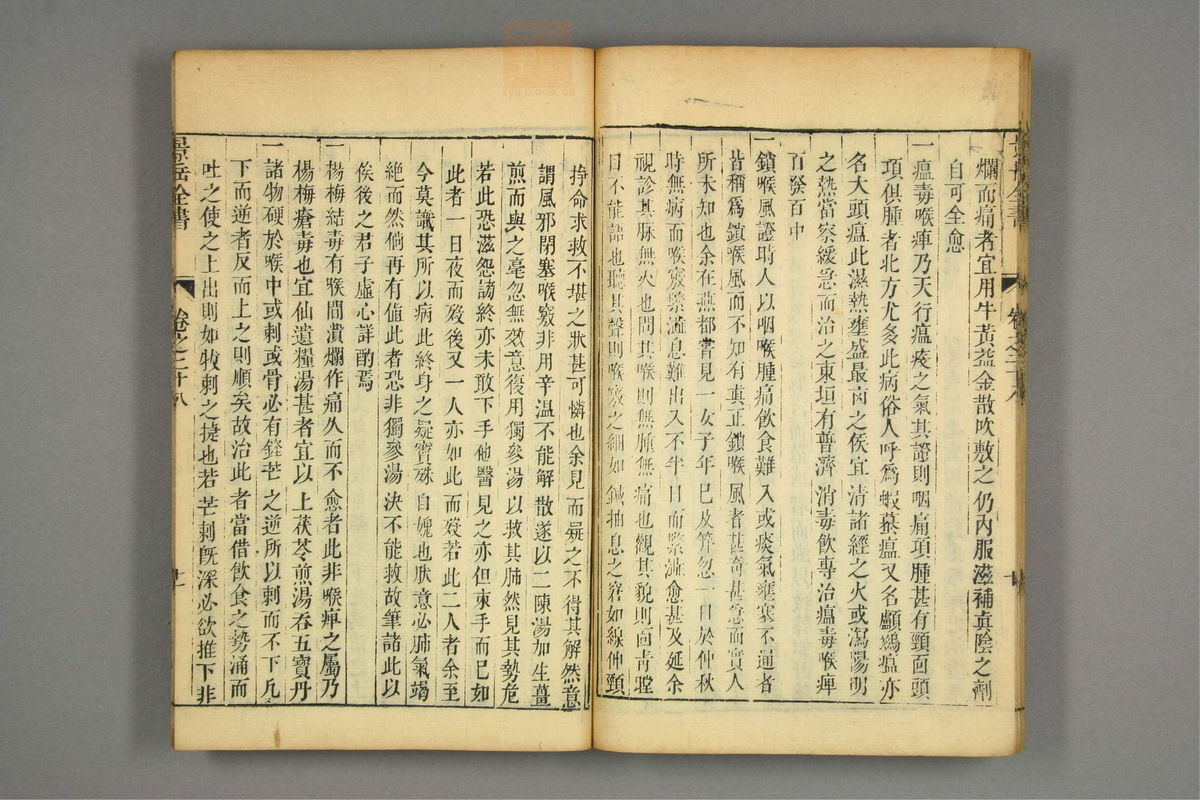 爛而痛者宜用牛黃益金散吹敷之仍內服滋補眞陰之劑
自可全愈
一瘟毒喉痺乃天行瘟疫之氣其證則咽痛項腫甚有頸面頭
項俱腫者北方尤多此病俗人呼爲蝦蟇瘟又名顱鶿瘟亦
名大頭瘟此濕熱壅盛最凶之候宜清諸經之火或瀉陽明
之熱當察緩急而治之東垣有普濟消毒飲專治瘟毒喉痺
百發百中
一鎖喉風證時人以咽喉腫痛飲食難入或痰氣壅塞不通者
皆稱爲鎖喉風而不知有眞正鎖喉風者甚奇甚急而實人
所未知也余在燕都嘗見一女子年已及笄忽一日於仲秋
時無病而喉竅緊澁息難出入不半日而緊澁愈甚及延余
視診其脉無火也問其喉則無腫無痛也觀其貌則面青瞠
目不能語也聽其聲則喉竅之細如鍼抽息之窘如線伸頸
掙命求救不堪之狀甚可憐也余見而疑之不得其解然意
謂風邪閉塞喉竅非用辛温不能解散遂以二陳湯加生薑
煎而與之毫忽無效意復用獨參湯以救其肺然見其勢危
若此恐滋怨謗終亦未敢下手他醫見之亦但束手而已如
此者一日夜而歿後又一人亦如此而歿若此二人者余至
今莫識其所以病此終身之疑竇殊自媿也肰意必肺氣竭
絶而然倘再有値此者恐非獨參湯決不能救故筆諸此以
俟後之君子虛心詳酌焉
一楊梅結毒有喉間潰爛作痛久而不愈者此非喉痺之屬乃
楊梅瘡毒也宜仙遺糧湯甚者宜以土茯苓煎湯吞五寶丹
一諸物硬於喉中或刺或骨必有鋒芒之逆所以刺而不下凡
下而逆者反而上之則順矣故治此者當借飲食之勢涌而
吐之使之上出則如牧刺之捷也若芒刺旣深必欲推下非
景岳全書
卷之二十八
十
景岳全書
卷之二十八
十一